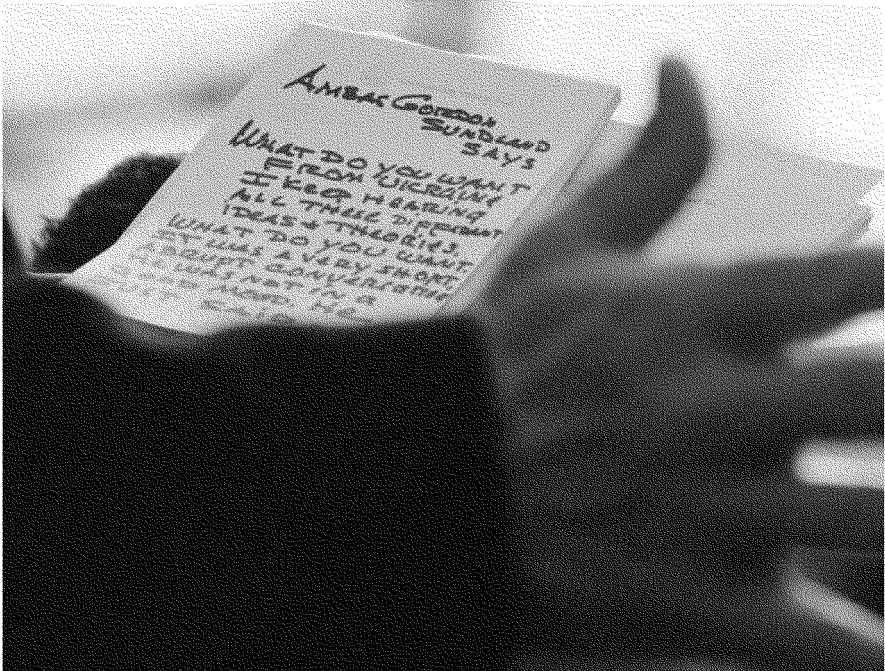 AMBAS GORDON
SUNDLAND
SAYS
WHAT DO YOU WANT
FROM UKRAINE
I KEEP HEARING
ALL THESE DIFFERENT
IDEAS & THEORIES.
WHAT DO YOU WANT
IT WAS A VERY SHORT
ABRUPT CONVERSATION
HE WAS NOT IN A
GOOD MOOD. HE
JUST SAID